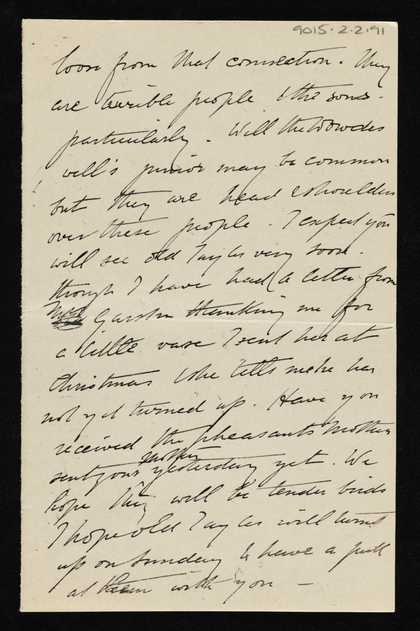 9015-2-2-91
loose from that connection. They
are terrible people & the sons
particularly. Will the
will's junior may be common
but they are head & shoulders
over these people. I expect you
will see old Tayler very soon.
though I have had a letter from
Mrs thanking me for
a little vase I sent her at
Christmas & she tells me he has
not yet turned up. Have you
received the pheasants Mother
sent your Mother yesterday yet. We
hope they will be tender birds
I hope old Tayler will turn
up on Sunday to have a pull
at them with you —